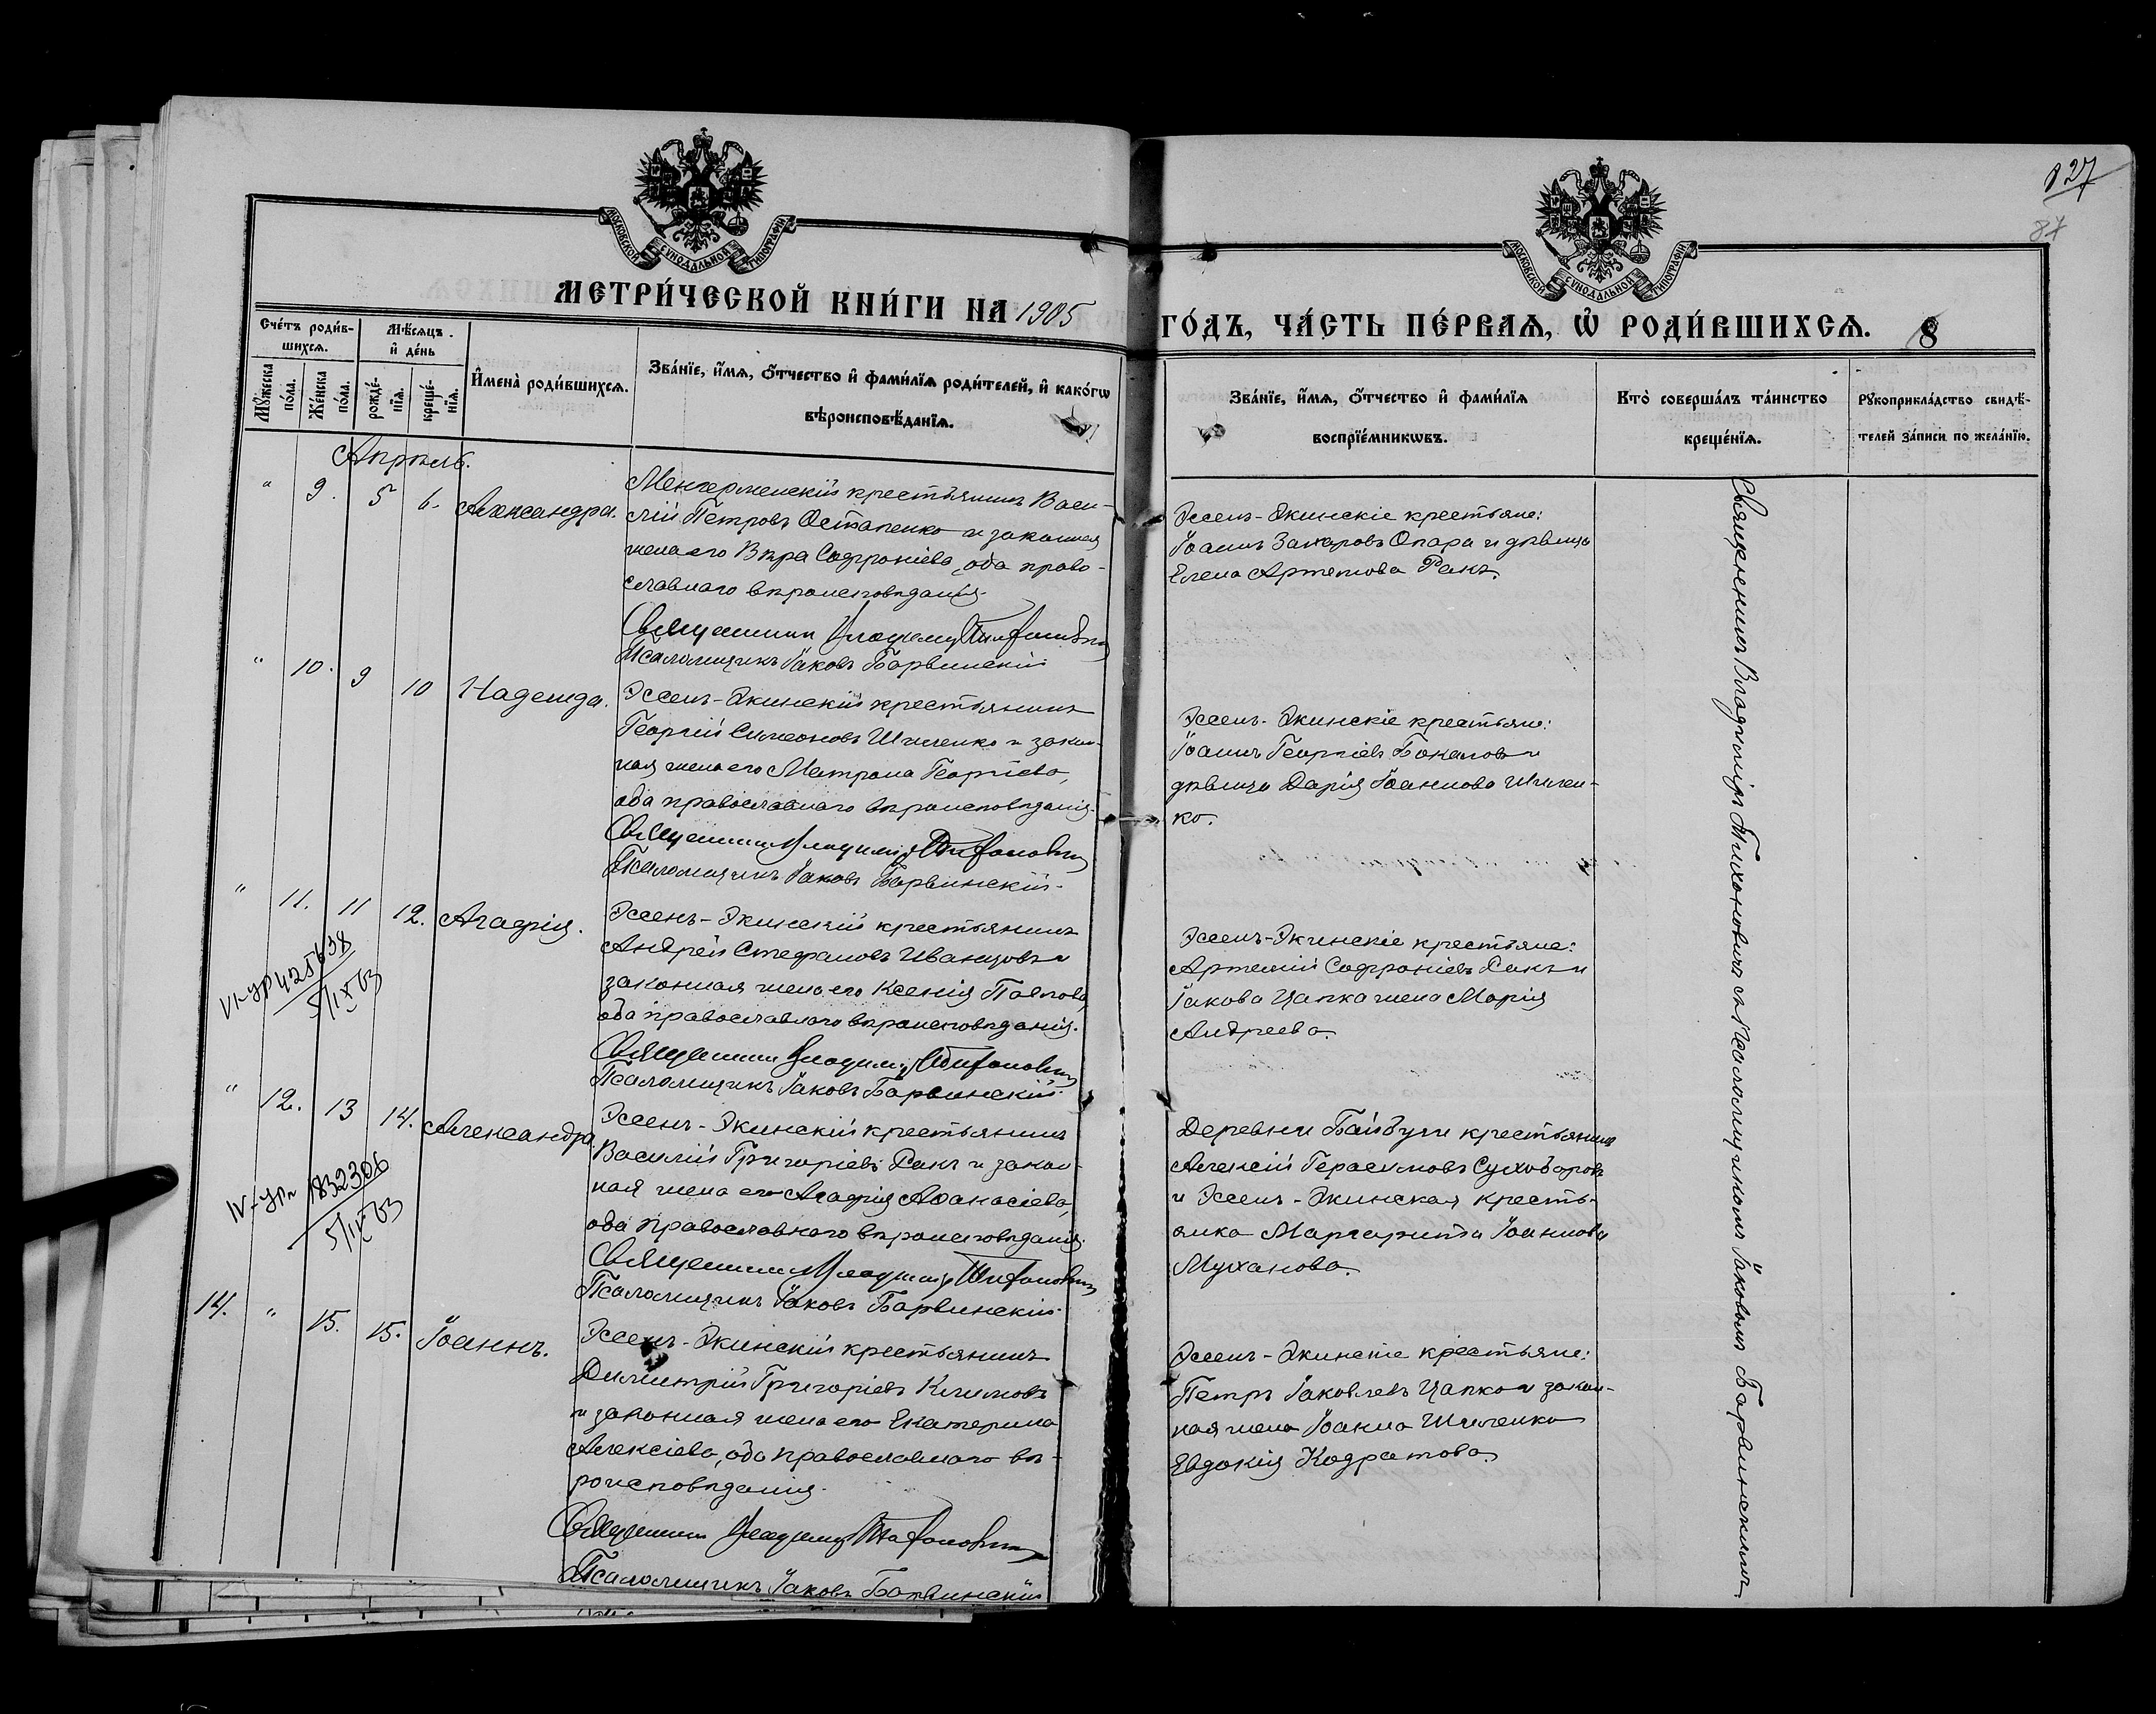 127
87
МОСКОВСКОЙ СѴНОДАЛЬНОЙ ТИПОГРАФИИ
МОСКОВСКОЙ СѴНОДАЛЬНОЙ ТИПОГРАФИИ
МЕТРИ́ЧЕСКОЙ КНИ́ГИ НА 1905
ГО́ДЪ, ЧА́СТЬ ПЕ́РВАѦ, Ѡ҆ РОДИ́ВШИХСѦ. 8
Сче́тъ роди́в-
шихсѧ.
Мѣ́сѧцъ
и҆ де́нь
Мꙋ́жеска по́ла.
Же́нска по́ла.
рожде́-
нїѧ.
креще́-
нїѧ.
И҆мена̀ роди́вшихсѧ.
Зва́нїе, и҆́мѧ, ѻ҆́тчество и҆ фами́лїѧ роди́телей, и҆ како́гѡ
вѣроисповѣ́данїѧ.
Зва́нїе, и҆́мѧ, ѻ҆́тчество и҆ фами́лїѧ
воспрїе́мникѡвъ.
Кто̀ соверша́лъ та́инство
креще́нїѧ.
Рꙋкоприкла́дство свидѣ́-
телей за́писи по жела́нїю.
Апрѣль.
" 9. 5 6. Александра.
Менгерменскій крестьянинъ Васи-
лій Петровъ Остапенко и законная
жена его Вѣра Софроніева, оба право-
славнаго вѣроисповѣданія.
Священникъ Владиміръ Тихоновичъ
Псаломщикъ Іаковъ Барвинскій
Эссенъ-Экинскіе крестьяне:
Іоаннъ Захаровъ Опара и дѣвица
Елена Артемова Ракъ.
" 10. 9 10 Надежда.
Эссенъ-Экинскій крестьянинъ
Георгій Симеоновъ Шиленко и закон-
ная жена его Матрона Георгіева,
оба православнаго вѣроисповѣданія.
Священникъ Владиміръ Тихоновичъ
Псаломщикъ Іаковъ Барвинскій.
Эссенъ-Экинскіе крестьяне:
Іоаннъ Георгіевъ Бокаловъ и
дѣвица Дарія Іоаннова Шилен-
ко.
" 11. 11 12. Агафія.
VI-УР 425638
5/IX 63
Эссенъ-Экинскій крестьянинъ
Андрей Стефановъ Иванцовъ и
законная жена его Ксенія Павлова,
оба православнаго вѣроисповѣданія.
Священникъ Владиміръ Тихоновичъ
Псаломщикъ Іаковъ Барвинскій.
Эссенъ-Экинскіе крестьяне:
Артемій Софроніевъ Ракъ и
Іакова Цапка жена Марія
Андреева.
" 12. 13 14. Александра
IV-УР 1832306
5/IX 63
Эссенъ-Экинскій крестьянинъ
Василій Григоріевъ Ракъ и закон-
ная жена его Агафія Афанасіева,
оба православнаго вѣроисповѣданія.
Священникъ Владиміръ Тихоновичъ
Псаломщикъ Іаковъ Барвинскій.
Деревни Байбуги крестьянинъ
Алексій Герасимовъ Суховаровъ
и Эссенъ-Экинская кресть-
янка Маргарита Іоаннова
Муханова.
14. " 15. 15. Іоаннъ.
Эссенъ-Экинскій крестьянинъ
Димитрій Григоріевъ Климовъ
и законная жена его Екатерина
Алексіева, оба православнаго вѣ-
роисповѣданія.
Священникъ Владиміръ Тихоновичъ
Псаломщикъ Іаковъ Барвинскій
Эссенъ-Экинскіе крестьяне:
Петръ Іаковлевъ Цапко и закон-
ная жена Іоанна Шиленка
Евдокія Кодратова.
Священникъ Владиміръ Тихоновичъ съ Псаломщикомъ Іаковымъ Барвинскимъ